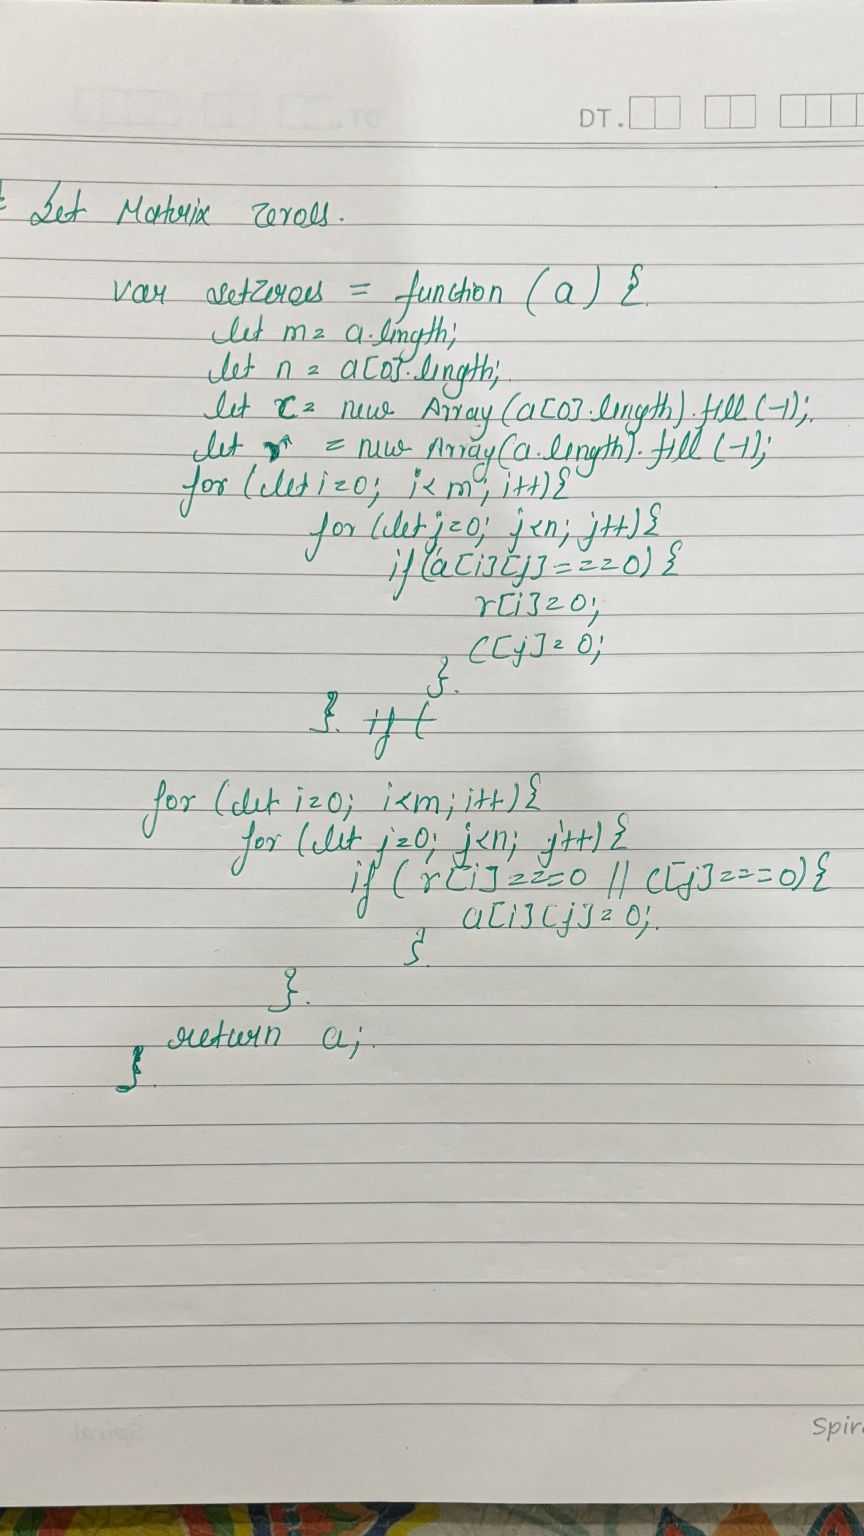 DT.
Set Matrix zeroes.
var setZeroes = function (a) {
let m = a.length;
let n = a[0].length;
let c = new Array(a[0].length).fill(-1);
let r = new Array(a.length).fill(-1);
for (let i=0; i<m; i++){
for (let j=0; j<n; j++){
if (a[i][j]===0) {
r[i]=0;
c[j]=0;
}.
}. if (
for (let i=0; i<m; i++){
for (let j=0; j<n; j++){
if (r[i]===0 || c[j]===0){
a[i][j]=0;.
}.
}.
return a;.
}.